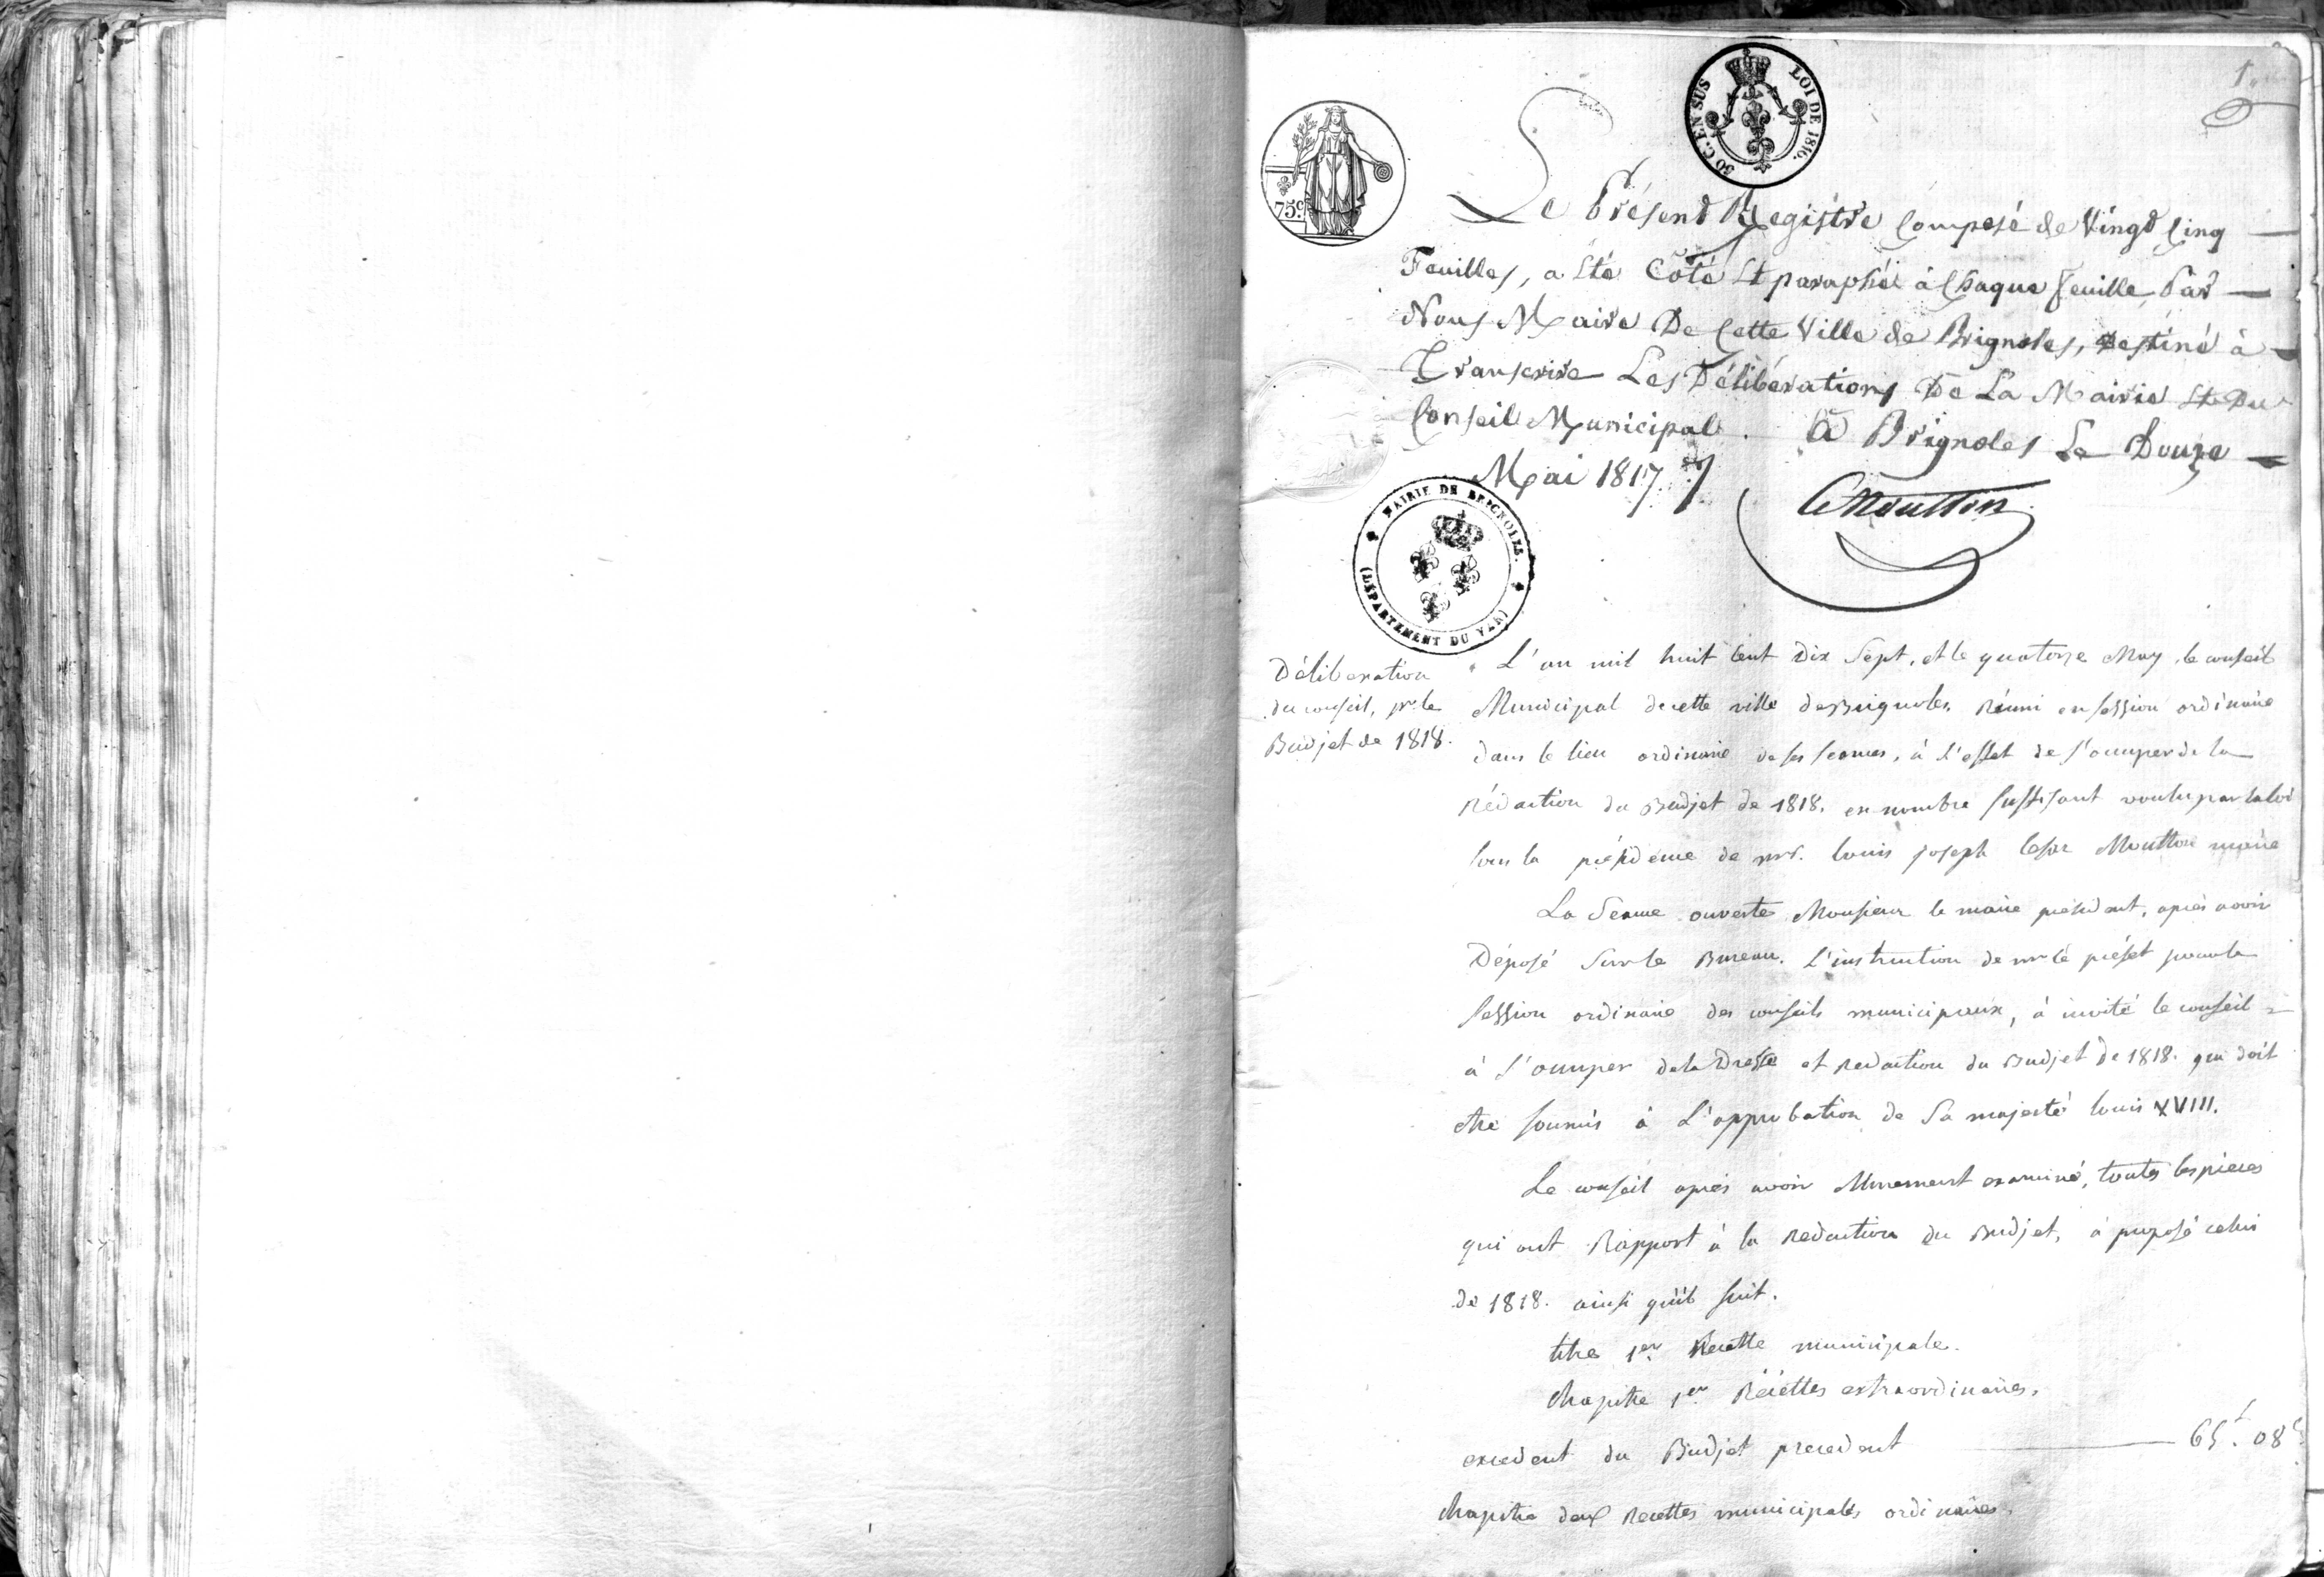 1.
30 C. EN SUS LOI DE 1816.
75 c.
Le Présent Registre Composé de Vingt Cinq
Feuilles, a Eté Côté Et paraphée à Chaque feuille Par
Nous Maire De Cette Ville de Brignoles, Destiné à
Transcrire Les Délibérations De La Mairie Et Du
Conseil Municipal. A Brignoles Le Douze
Mai 1817
CMoutton
MAIRIE DE BRIGNOLES.
(DÉPARTEMENT DU VAR)
Déliberation
du conseil, pr le
Budjet de 1818.
L'an mil huit Cent Dix Sept, et le quatorze May, le conseil
Municipal de cette ville de Brignoles, Réuni en session ordinaire
dans le lieu ordinaire de ses seances, à l'effet de s'occuper de la
Rédaction du Budjet de 1818. en nombre suffisant voulu par la loi
sous la présidence de mr. louis joseph Cesar Moutton maire
La Seance ouverte Monsieur le maire président, après avoir
Déposé Sur le Bureau. L'instruction de mr le préfet pour la
session ordinaire des conseils municipaux, à invité le conseil
à s'occuper de la Dresse et redaction du Budjet de 1818. qui doit
etre soumis à L'approbation de Sa majesté louis XVIII.
Le conseil après avoir Murement examiné, toutes les pièces
qui ont Rapport à la redaction du Budjet, à proposé celui
de 1818. ainsi qu'il suit.
titre 1er. Recette municipale.
Chapitre 1er. Récettes extraordinaires.
excedent du Budjet precedent 65.f 08c
Chapitre deux Recettes municipales ordinaires.